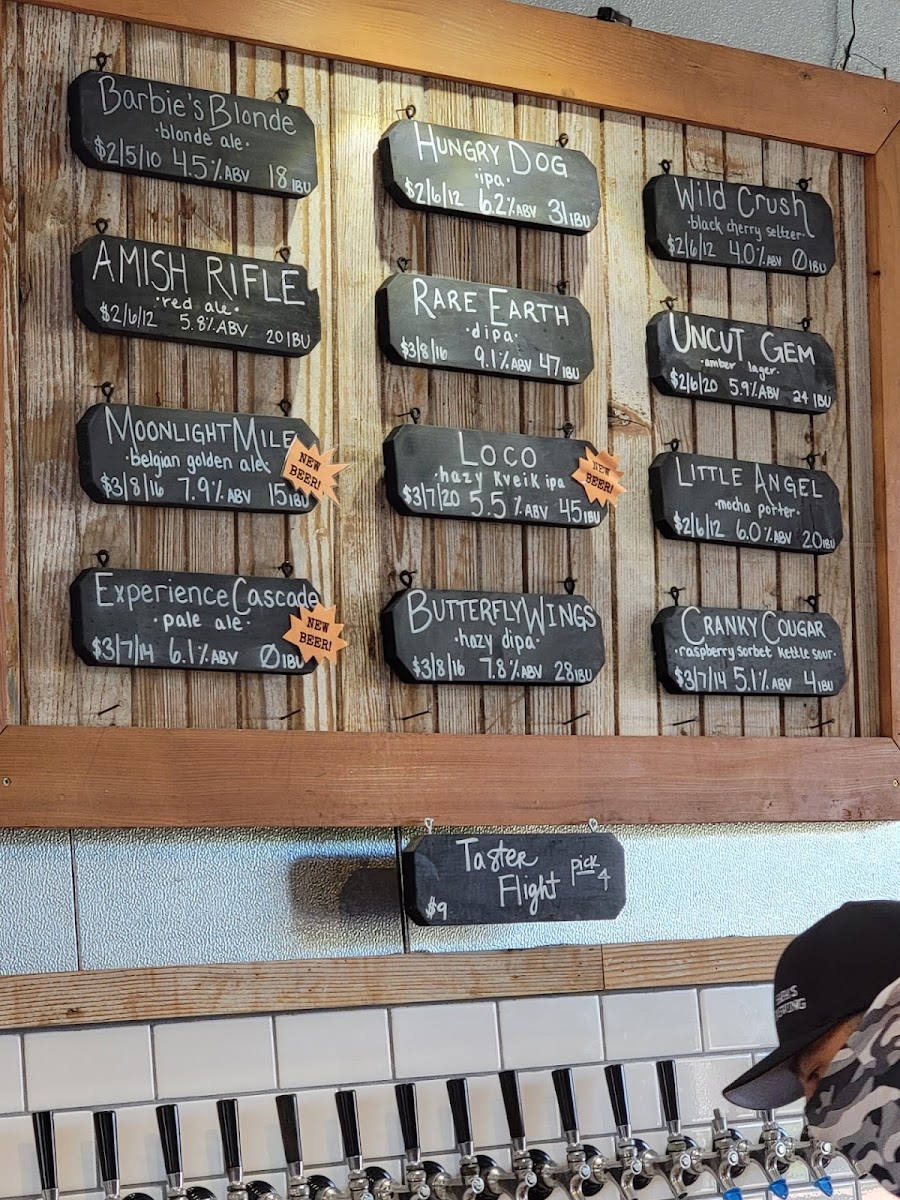 Barbie's Blonde
·blonde ale·
$2/5/10 4.5%ABV 18IBU
AMISH RIFLE
·red ale·
$2/6/12 5.8%ABV 20IBU
MOONLIGHT MILE
·belgian golden ale·
$3/8/16 7.9%ABV 15IBU
NEW
BEER!
Experience Cascade
·pale ale·
$3/7/14 6.1%ABV ØIBU
NEW
BEER!
HUNGRY DOG
·ipa·
$2/6/12 6.2%ABV 31IBU
RARE EARTH
·dipa·
$3/8/16 9.1%ABV 47IBU
LOCO
·hazy Kveik ipa
$3/7/20 5.5%ABV 45IBU
NEW
BEER!
BUTTERFLY WINGS
·hazy dipa·
$3/8/16 7.8%ABV 28IBU
Wild Crush
·black cherry seltzer·
$2/6/12 4.0%ABV ØIBU
UNCUT GEM
·amber lager·
$2/6/20 5.9%ABV 24IBU
LITTLE ANGEL
·mocha porter·
$2/6/12 6.0%ABV 20IBU
CRANKY COUGAR
·raspberry sorbet kettle sour·
$3/7/14 5.1%ABV 4IBU
Taster
Flight
pick
4
$9